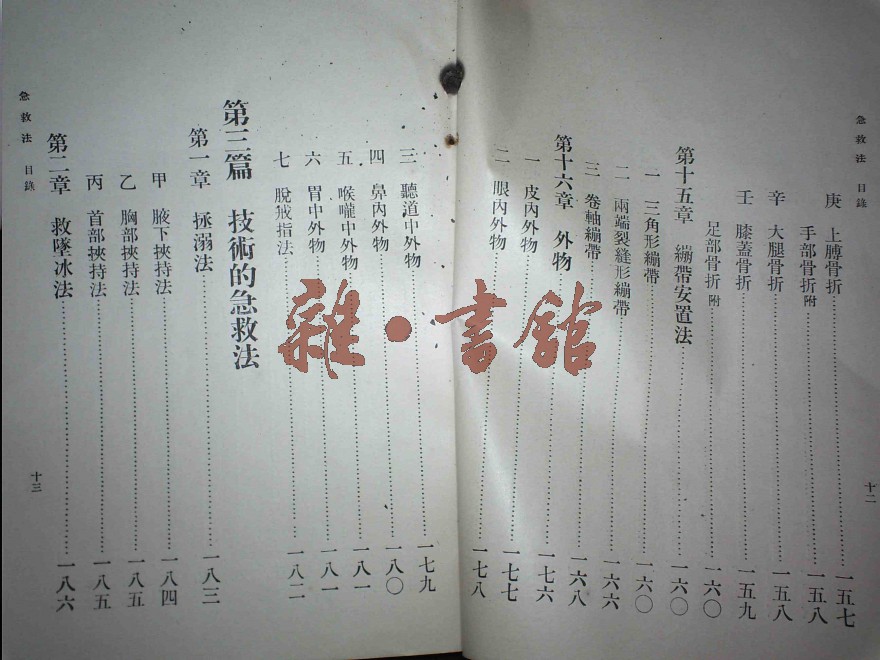 急救法 目錄
庚 上膊骨折……一五七
手部骨折附……一五八
辛 大腿骨折……一五八
壬 膝蓋骨折……一五九
足部骨折附……一六〇
第十五章 繃帶安置法……一六〇
一 三角形繃帶……一六〇
二 兩端裂縫形繃帶……一六六
三 卷軸繃帶……一六八
第十六章 外物……一七六
一 皮內外物……一七七
二 眼內外物……一七八
十二
三 聽道中外物……一七九
四 鼻內外物……一八〇
五 喉嚨中外物……一八一
六 胃中外物……一八一
七 脫戒指法……一八二
第三篇 技術的急救法
第一章 拯溺法……一八三
甲 腋下挾持法……一八四
乙 胸部挾持法……一八五
丙 首部挾持法……一八五
第二章 救墜冰法……一八六
急救法 目錄
十三
雜·書館